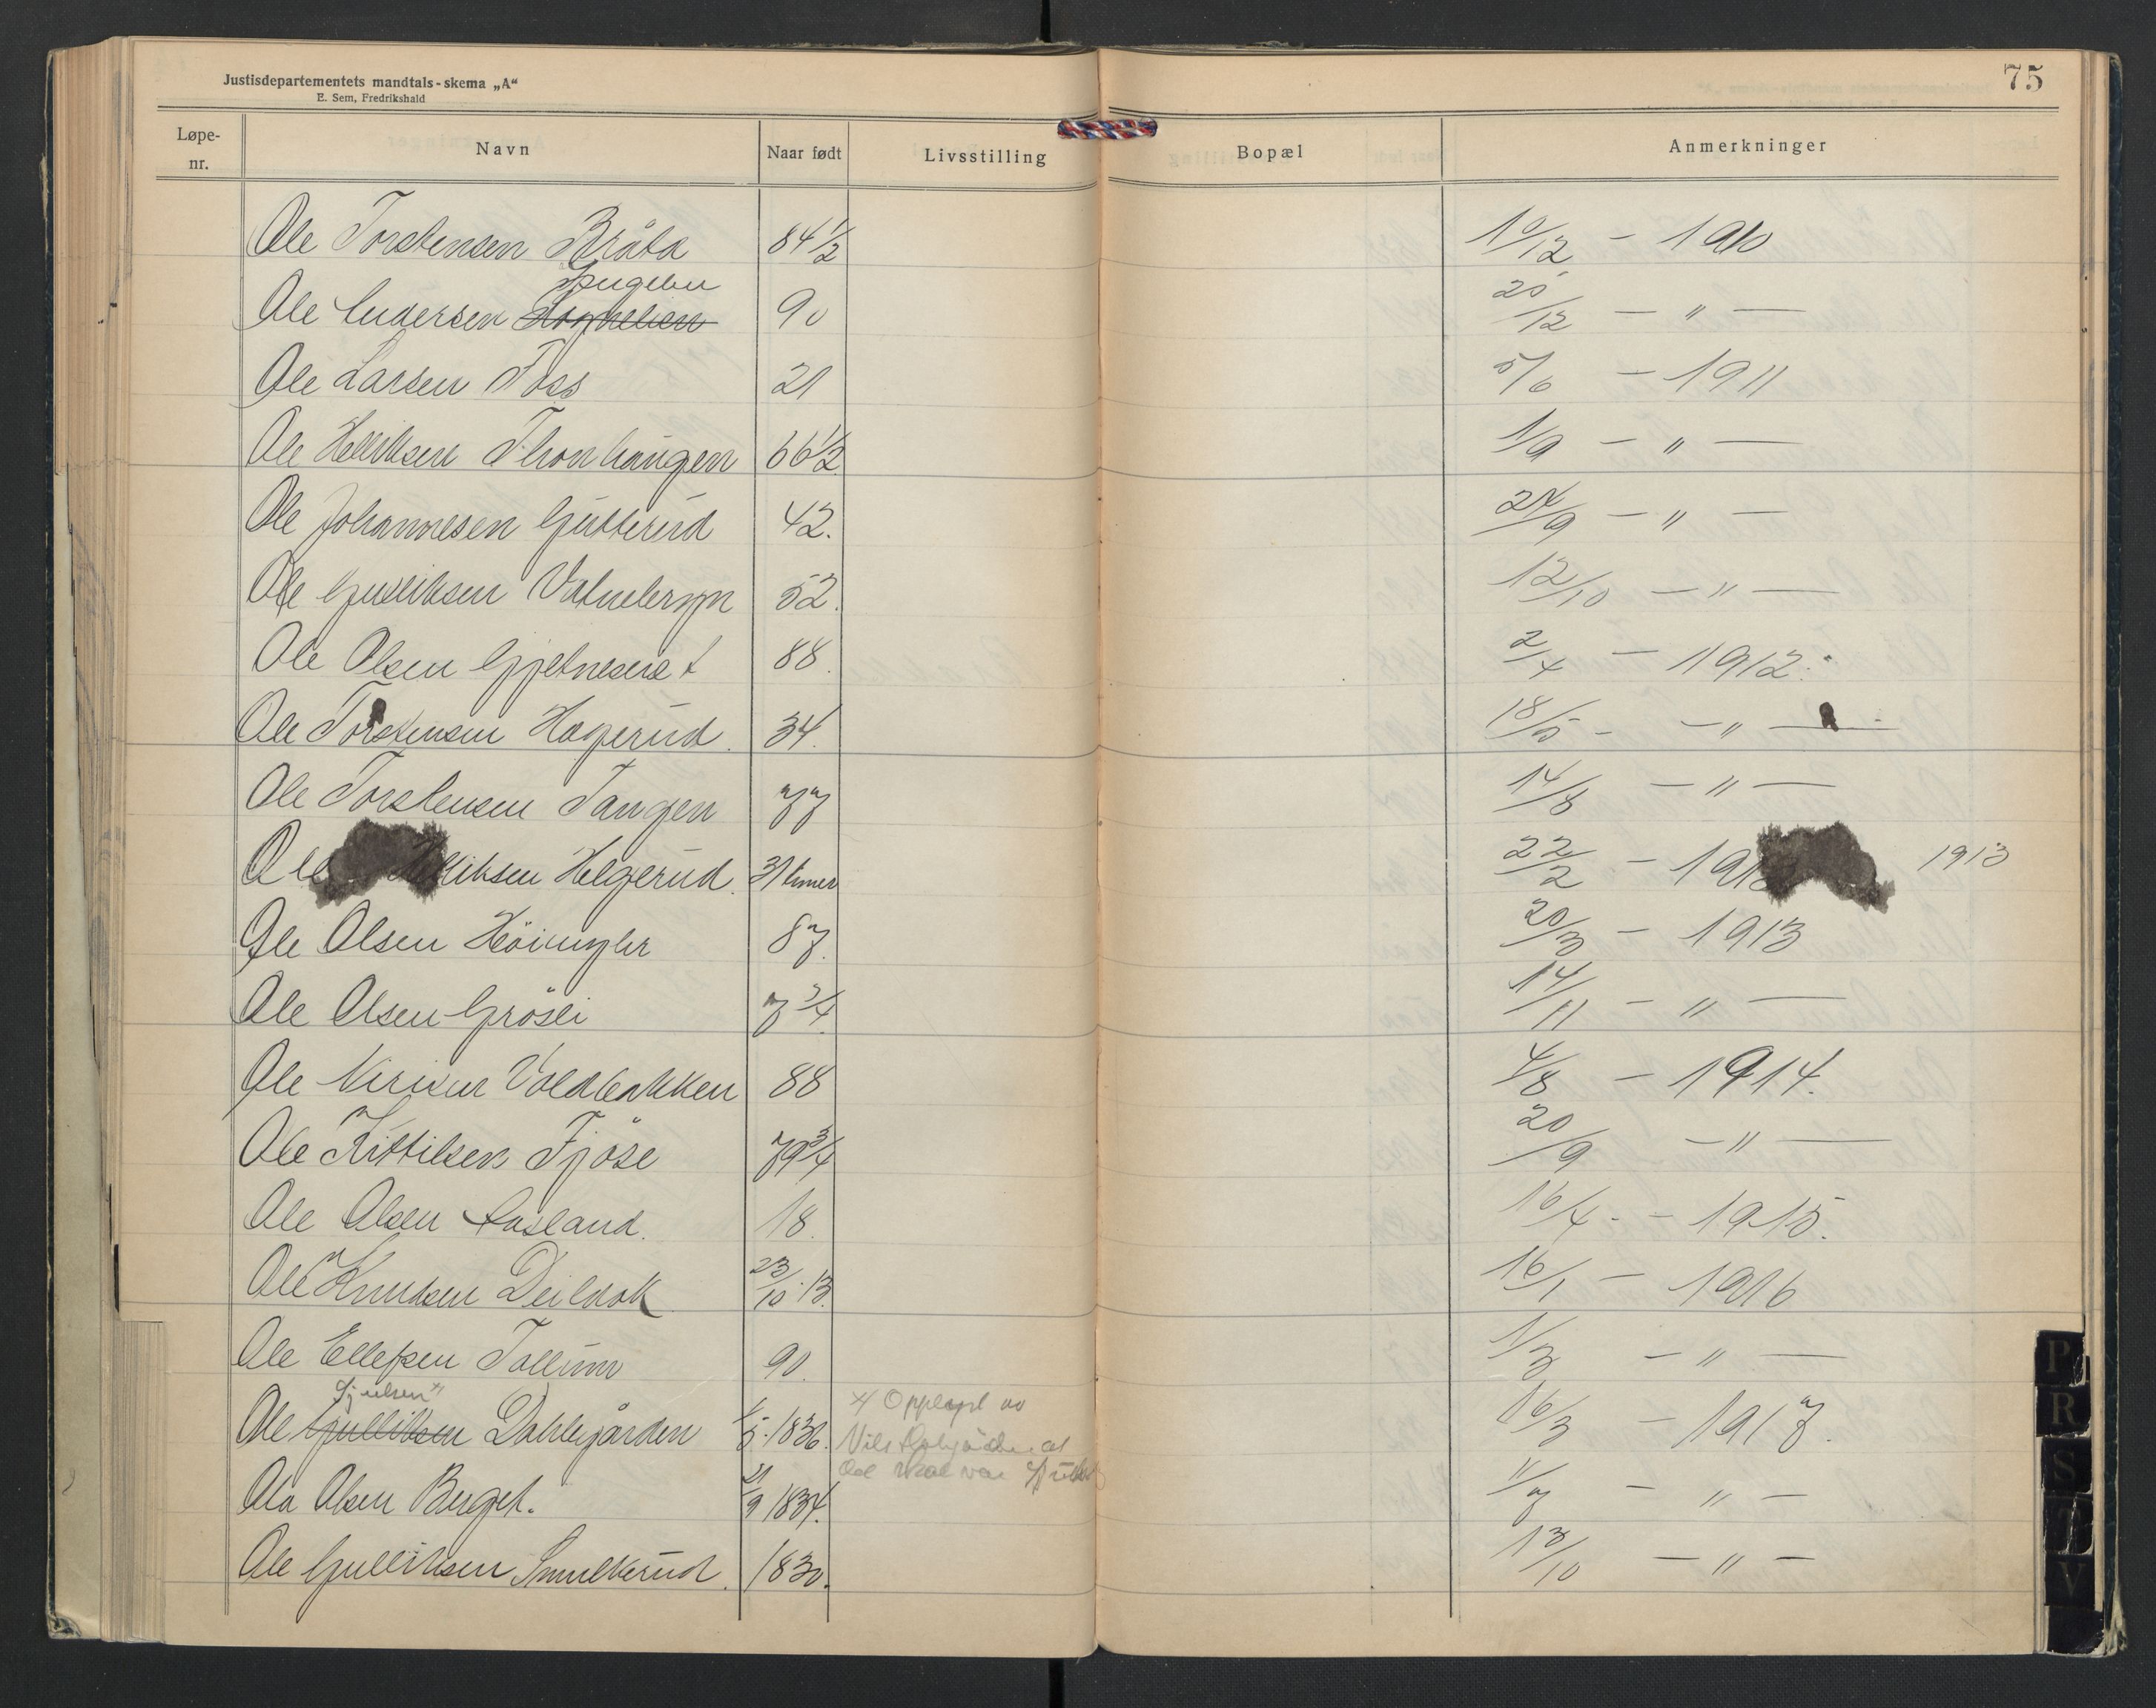 Justisdepartementets mandtals-skema „A“
E. Sem, Fredrikshald
75
Løpe-nr. Navn Naar født Livsstilling Bopæl Anmerkninger
Ole Torstensen Bråta 84 1/2 10/12 - 1910
Ole Andersen 90 20/12 - " -
Ole Larsen Foss 21 5/6 - 1911
Ole Helliksen Thonhaugen 66 1/2 1/9 - " -
Ole Johannesen Gutterud 42. 24/9 - " -
Ole Gulliksen 52. 12/10 - " -
Ole Olsen 88. 2/4 - 1912.
Ole Torstensen Hagerud. 34. 18/5 - - " -
Ole Torstensen Tangen 77 14/8 - " -
Ole Helliksen Helgerud. 31 timer 22/2 - 1913 1913
Ole Olsen 87. 20/3 - 1913
Ole Olsen Grösli 7 3/4. 14/11 - " -
Ole Nirisen Voldbakken 88 4/8 - 1914.
Ole Kittilsen Fjöse 79 3/4 20/9 - " -
Ole Olsen Aasland. 18. 16/4. - 1915.
Ole Knudsen 23/10. 13. 16/1 - 1916
Ole Ellefsen Tollum 90. 1/3 - " -
Sjulsen x)
Ole Gulliksen Dahlegården 1/5. 1836. 16/3 - 1917.
x) Opplyst av
Nils
Ole skal være
Ola Olsen Berget. 21/9 1834. 11/7 - " -
Ole Gulliksen Smulkerud. 1830. 13/10 - " -
P
R
S
T
V